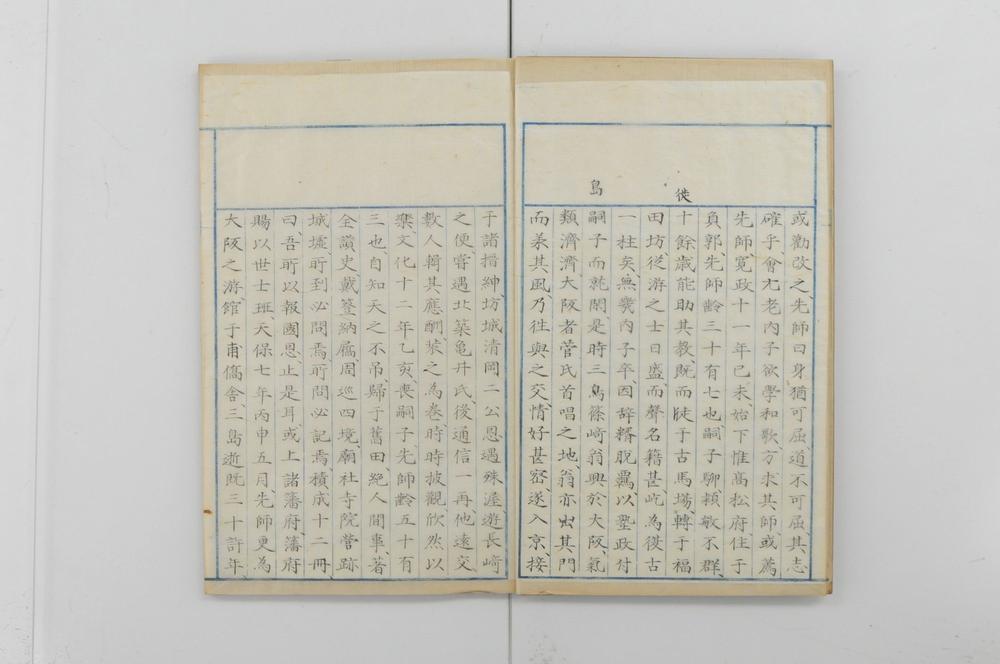 或勸改之先師曰身猶可屈道不可屈其志
確乎會尢老内子欲學和歌方求其師或薦
先師寛政十一年已未始下惟髙松府住于
負郭先師齡三十有七也嗣子聊頛敏不群
徙
十餘歳能助其教既而陡于古馬場轉于福
田坊從游之士日盛而聲名籍甚屹為復古
一柱矣無㡬内子卒因辞糈脫覊以塾政付
島
嗣子而就閑是時三鳥篠﨑翁興於大阪氣
類濟濟大阪者菅氏首唱之地翁亦出其門
而羕其風乃徃與之交情好甚密遂入京接
于諸搢紳坊城清岡二公恩遇殊渥遊長﨑
之便嘗遇北築亀井氏後通信一再他遠交
數人輯其應酬裝之為巻時時披觀欣然以
樂文化十二年乙亥喪嗣子先師齡五十有
三也自知天之不吊歸于舊田絶人間事著
全讃史戴簦納屩周巡四境廟社寺院營跡
城墟所到必問焉所問必記焉積成十二冊
曰吾所以報國恩止是耳或上諸藩府藩府
賜以世士班天保七年丙申五月先師更為
大阪之游館于甫僑舎三島逝既三十許年